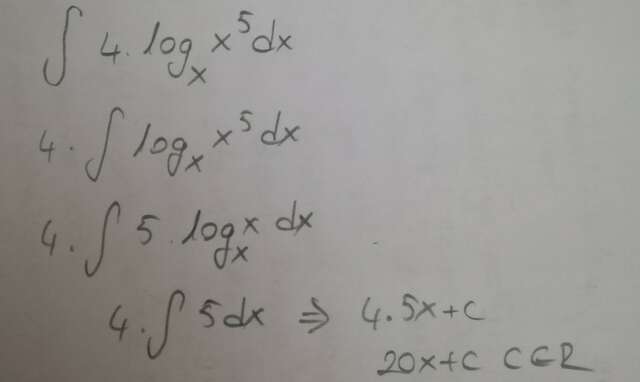 ∫ 4. logₓ x⁵ dx
4. ∫ logₓ x⁵ dx
4. ∫ 5. logₓ x dx
4. ∫ 5 dx ⇒ 4.5x+c
20x+c c∈R